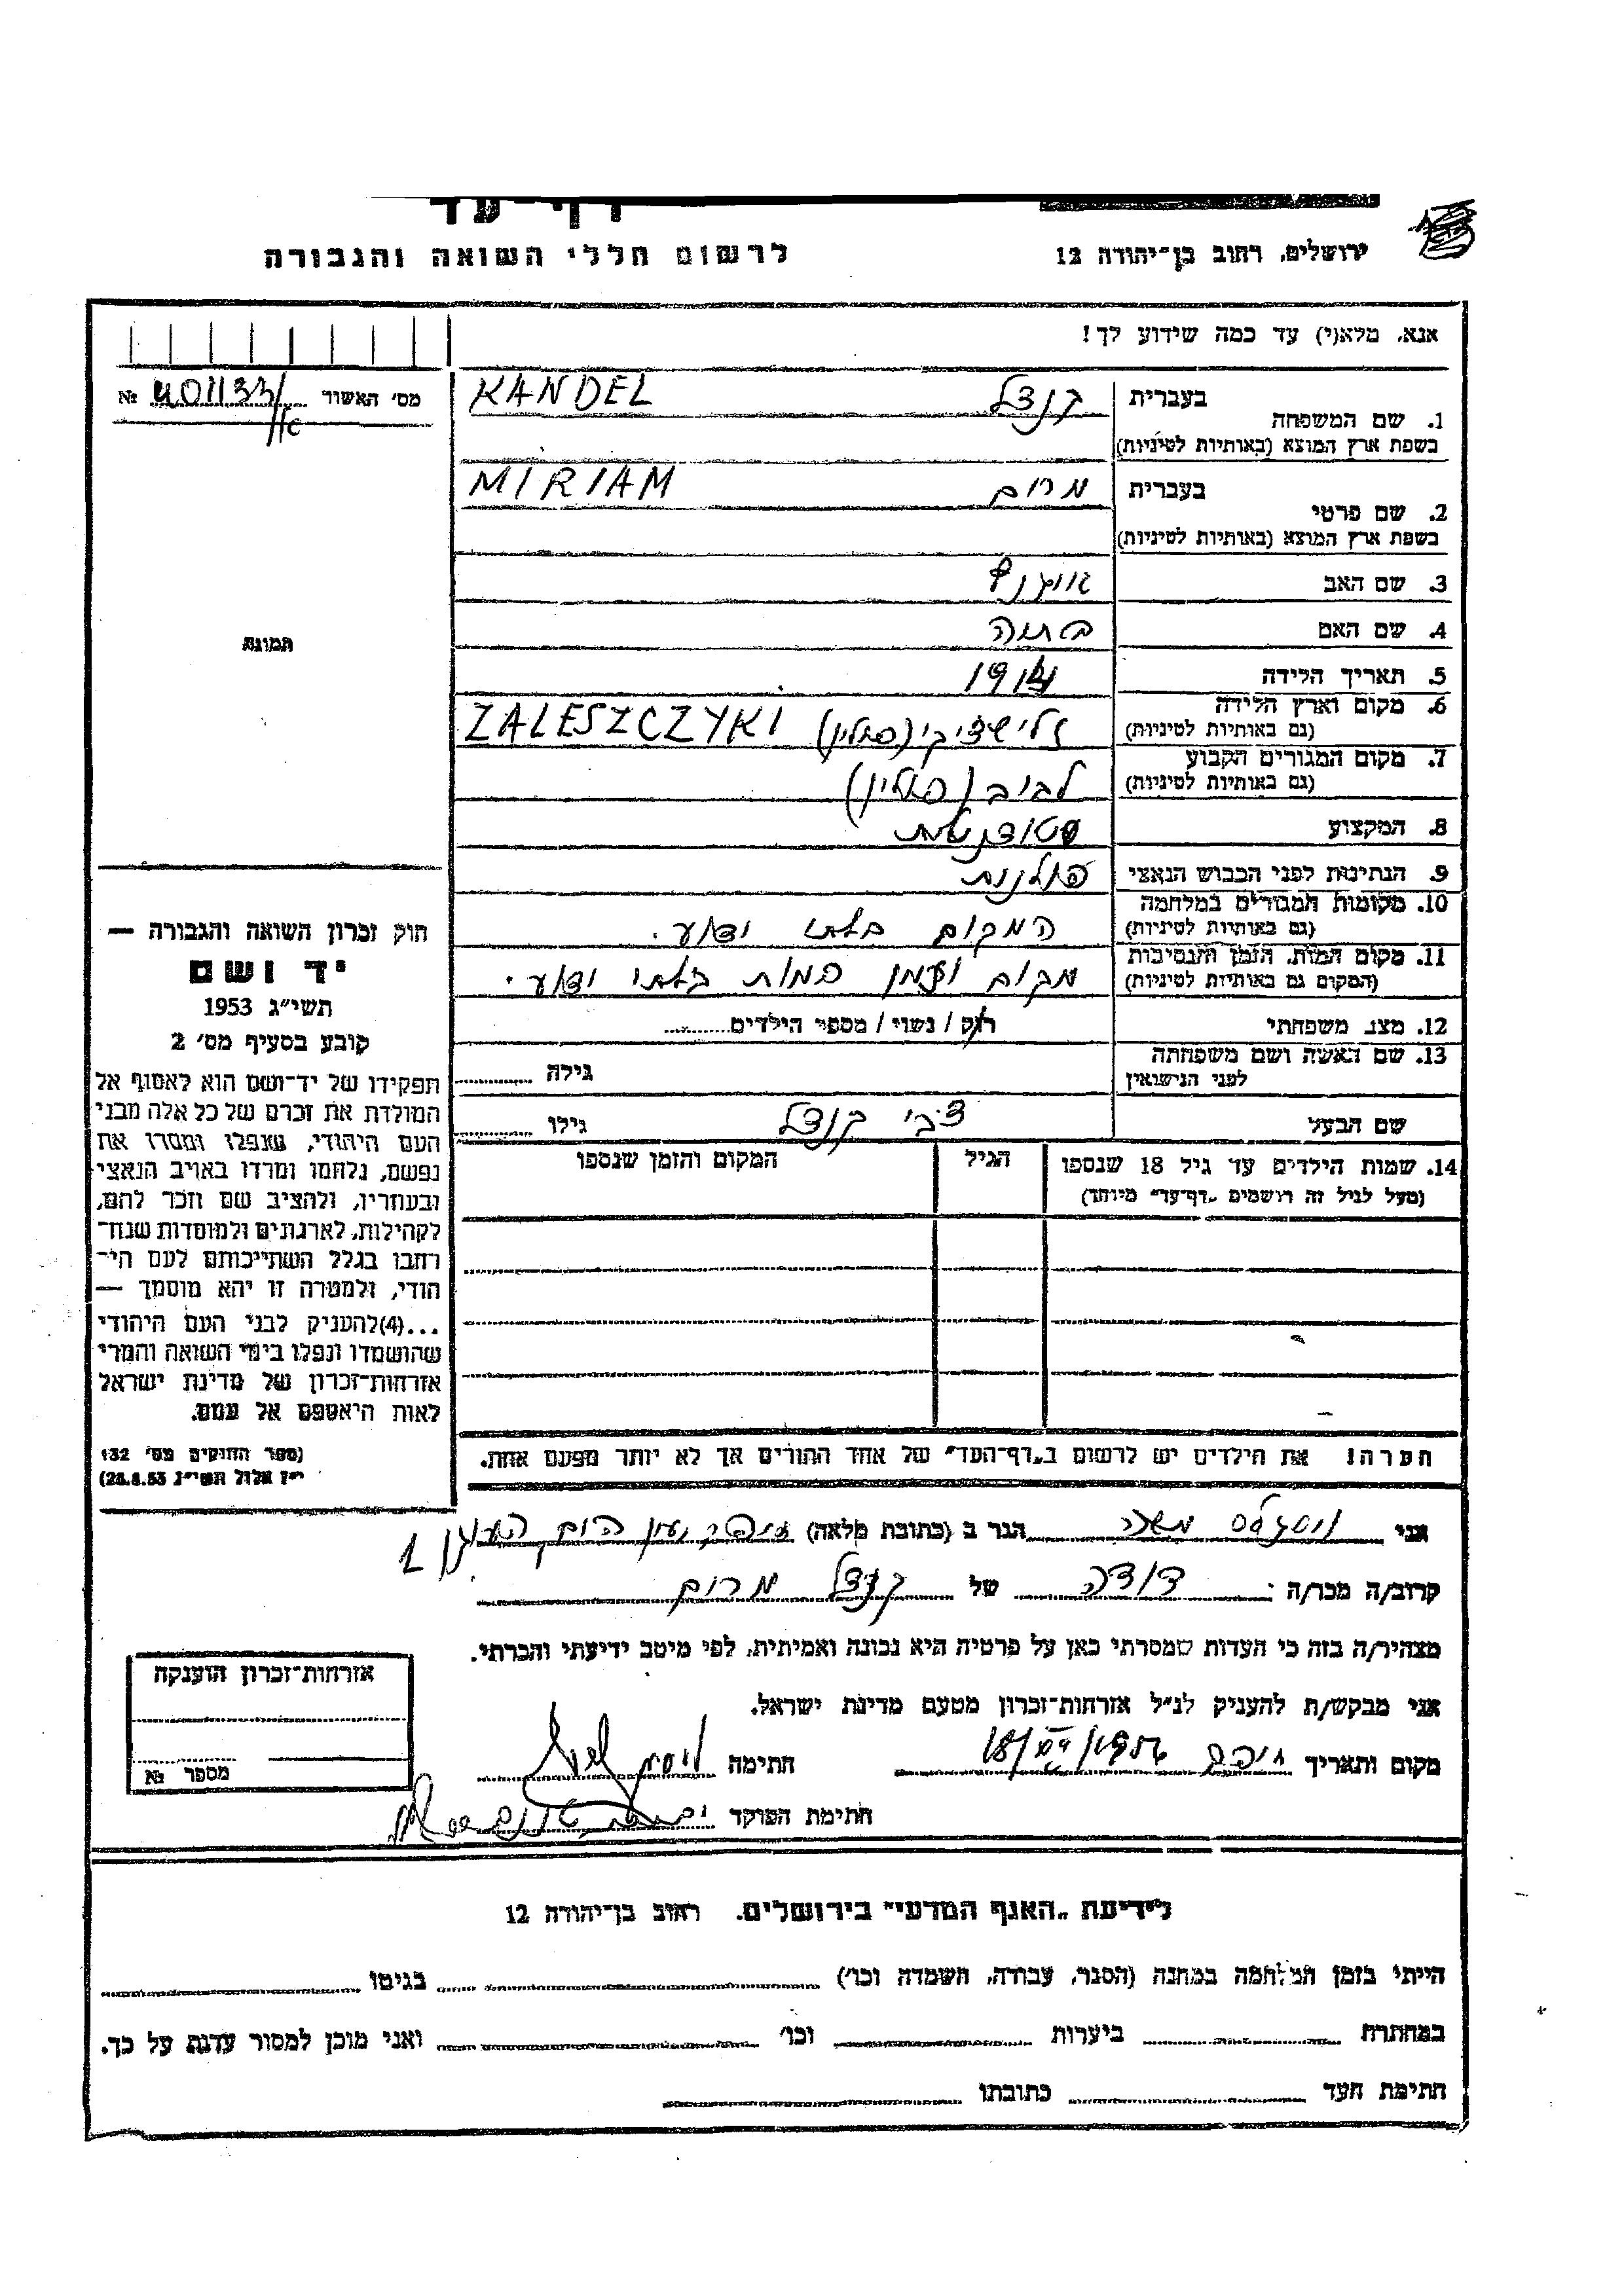 דף-עד
לרשום חללי השואה והגבורה
ירושלים, רחוב בן-יהודה 12
אנא, מלא(י) עד כמה שידוע לך!
מס׳ האשור № 401133/
1. שם המשפחה בעברית קנדל KANDEL
בשפת ארץ המוצא (באותיות לטיניות)
2. שם פרטי בעברית מרים MIRIAM
בשפת ארץ המוצא (באותיות לטיניות)
3. שם האב
4. שם האם ברטה
5. תאריך הלידה
6. מקום וארץ הלידה (פולין) ZALESZCZYKI
(גם באותיות לטיניות)
7. מקום המגורים הקבוע לביב (פולין)
(גם באותיות לטיניות)
8. המקצוע סטודנטית
9. הנתינות לפני הכבוש הנאצי פולנית
10. מקומות המגורים במלחמה המקום בלתי ידוע.
(גם באותיות לטיניות)
11. מקום המות, הזמן והנסיבות מקום וזמן המות בלתי ידוע.
(המקום גם באותיות לטיניות)
12. מצב משפחתי רוק / נשוי / מספר הילדים
13. שם האשה ושם משפחתה גילה
לפני הנישואין
שם הבעל צבי קנדל גילו
14. שמות הילדים עד גיל 18 שנספו הגיל המקום והזמן שנספו
(מעל לגיל זה רושמים „דף-עד״ מיוחד)
הערה! את הילדים יש לרשום ב„דף-העד״ של אחד ההורים אך לא יותר מפעם אחת.
תמונה
חוק זכרון השואה והגבורה —
יד ושם
תשי״ג 1953
קובע בסעיף מס׳ 2
תפקידו של יד-ושם הוא לאסוף אל
המולדת את זכרם של כל אלה מבני
העם היהודי, שנפלו ומסרו את
נפשם, נלחמו ומרדו באויב הנאצי
ובעוזריו, ולהציב שם וזכר להם,
לקהילות, לארגונים ולמוסדות שנח-
רחבו בגלל השתייכותם לעם הי-
הודי, ולמטרה זו יהא מוסמך —
...(4)להעניק לבני העם היהודי
שהושמדו ונפלו בימי השואה והמרי
אזרחות-זכרון של מדינת ישראל
לאות היאספם אל עמם.
(ספר החוקים מס׳ 132
י״ז אלול תשי״ג 28.8.53)
אני משה הגר ב (כתובת מלאה)
קרוב/ה מכר/ה דודה של קנדל מרים
מצהיר/ה בזה כי העדות שמסרתי כאן על פרטיה היא נכונה ואמיתית, לפי מיטב ידיעתי והכרתי.
אני מבקש/ת להעניק לנ״ל אזרחות-זכרון מטעם מדינת ישראל.
מקום ותאריך חיפה חתימה
חתימת הפוקד
אזרחות-זכרון הוענקה
מספר №
לידיעת „האגף המדעי״ בירושלים, רחוב בן-יהודה 12
הייתי בזמן המלחמה במחנה (הסגר, עבודה, השמדה וכו׳) בגיטו
במחתרת ביערות וכו׳ ואני מוכן למסור עדות על כך.
חתימת העד כתובתו